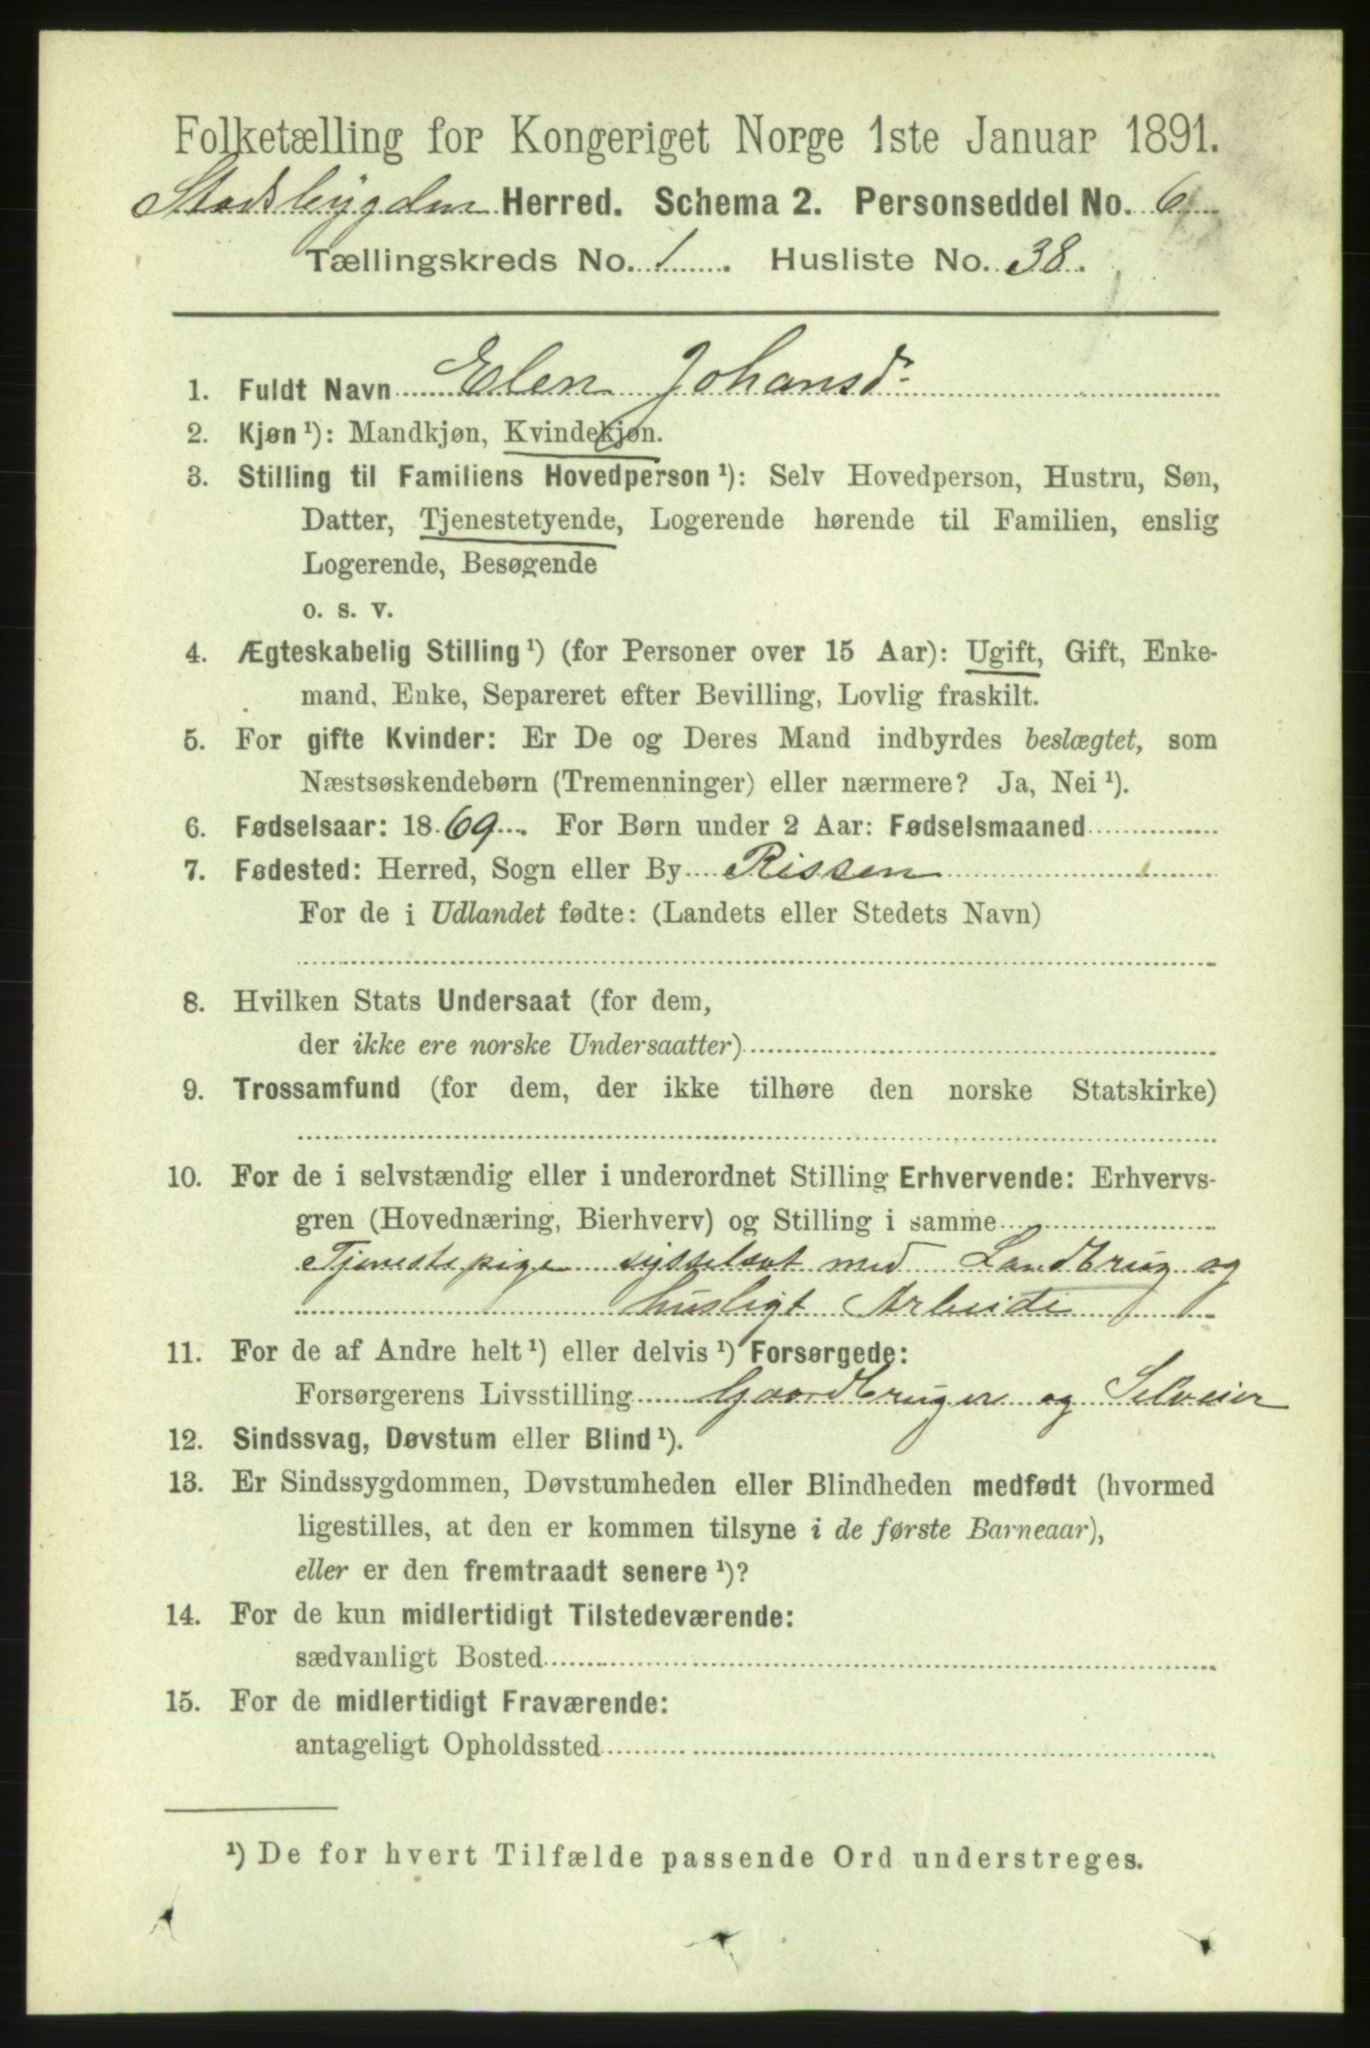 Folketælling for Kongeriget Norge 1ste Januar 1891.
Stadsbygden Herred. Schema 2. Personseddel No. 6
Tællingskreds No. 1. Husliste No. 38.
1. Fuldt Navn Elen Johansd.
2. Kjøn ¹): Mandkjøn, Kvindekjøn.
3. Stilling til Familiens Hovedperson ¹): Selv Hovedperson, Hustru, Søn,
Datter, Tjenestetyende, Logerende hørende til Familien, enslig
Logerende, Besøgende
o. s. v.
4. Ægteskabelig Stilling ¹) (for Personer over 15 Aar): Ugift, Gift, Enke-
mand, Enke, Separeret efter Bevilling, Lovlig fraskilt.
5. For gifte Kvinder: Er De og Deres Mand indbyrdes beslægtet, som
Næstsøskendebørn (Tremenninger) eller nærmere? Ja, Nei ¹).
6. Fødselsaar: 1869. For Børn under 2 Aar: Fødselsmaaned
7. Fødested: Herred, Sogn eller By Rissen
For de i Udlandet fødte: (Landets eller Stedets Navn)
8. Hvilken Stats Undersaat (for dem,
der ikke ere norske Undersaatter)
9. Trossamfund (for dem, der ikke tilhøre den norske Statskirke)
10. For de i selvstændig eller i underordnet Stilling Erhvervende: Erhvervs-
gren (Hovednæring, Bierhverv) og Stilling i samme
Tjenestepige sysselsat med Landbrug og
husligt Arbeide
11. For de af Andre helt ¹) eller delvis ¹) Forsørgede:
Forsørgerens Livsstilling Gaardbruger og Selveier
12. Sindssvag, Døvstum eller Blind ¹).
13. Er Sindssygdommen, Døvstumheden eller Blindheden medfødt (hvormed
ligestilles, at den er kommen tilsyne i de første Barneaar),
eller er den fremtraadt senere ¹)?
14. For de kun midlertidigt Tilstedeværende:
sædvanligt Bosted
15. For de midlertidigt Fraværende:
antageligt Opholdssted
¹) De for hvert Tilfælde passende Ord understreges.